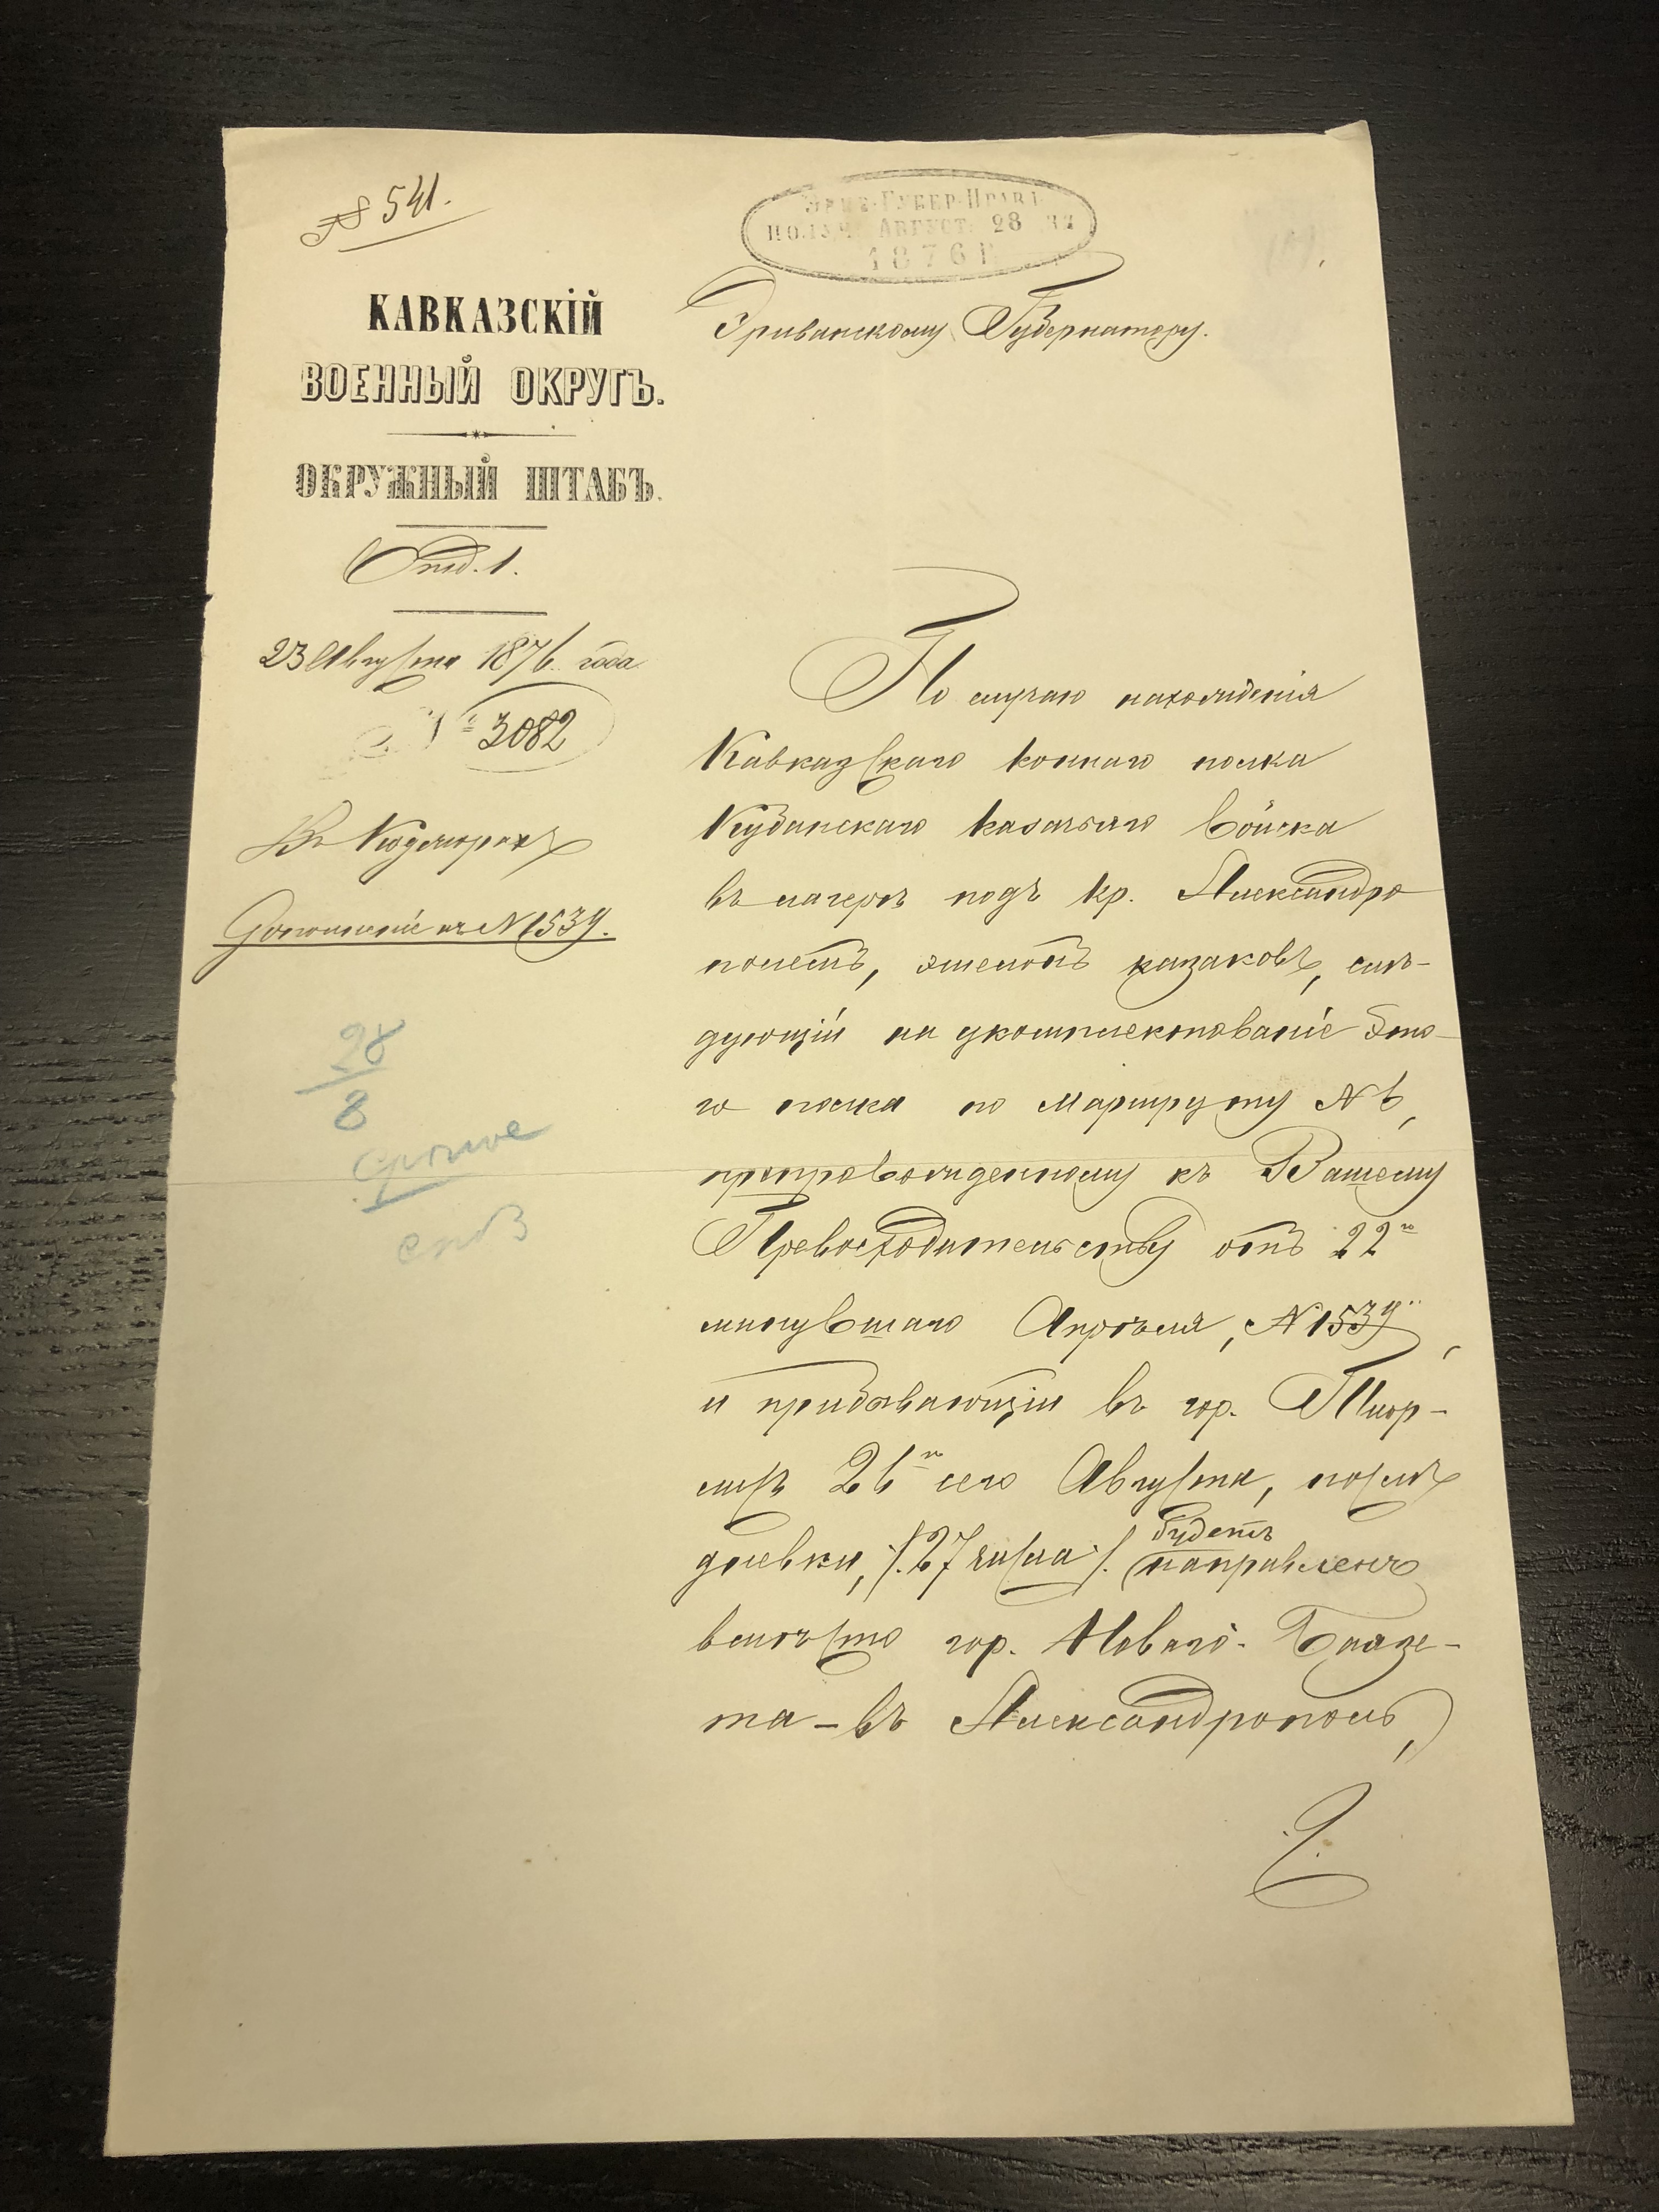 № 541.
Эрив. Губер. Прав.
Получ. Август. 28
1876 г.
КАВКАЗСКІЙ
ВОЕННЫЙ ОКРУГЪ.
ОКРУЖНЫЙ ШТАБЪ.
Отд. 1.
23 Августа 1876 года
№ 3082
Въ Коджорахъ
Дополненіе къ № 1539.
28
8
Эриванскому Губернатору.
По случаю нахожденія
Кавказскаго коннаго полка
Кубанскаго казачьяго войска
въ лагерѣ подъ кр. Александро
полемъ, эшелонъ казаковъ, слѣ-
дующій на укомплектованіе это-
го полка по маршруту № 6,
препровожденному къ Вашему
Превосходительству отъ 22го
минувшаго Апрѣля, № 1539,
и прибывающій въ гор. Тиф-
лисъ 26го сего Августа, послѣ
дневки, /: 27 числа :/ будетъ
направленъ
вмѣсто гор. Новаго-Баязе-
та – въ Александрополь,